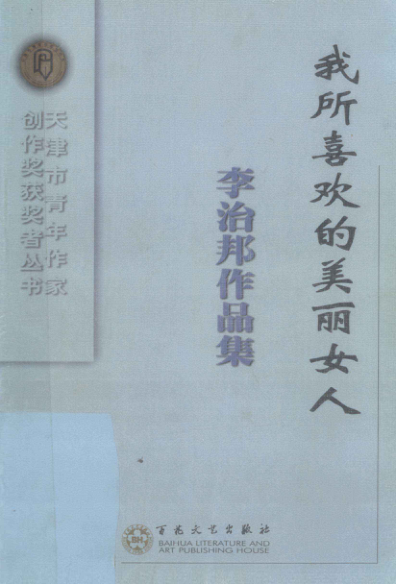 我所喜欢的美丽女人
李治邦作品集
天津市青年作家
创作奖获奖者丛书
百花文艺出版社
BAIHUA LITERATURE AND
ART PUBLISHING HOUSE